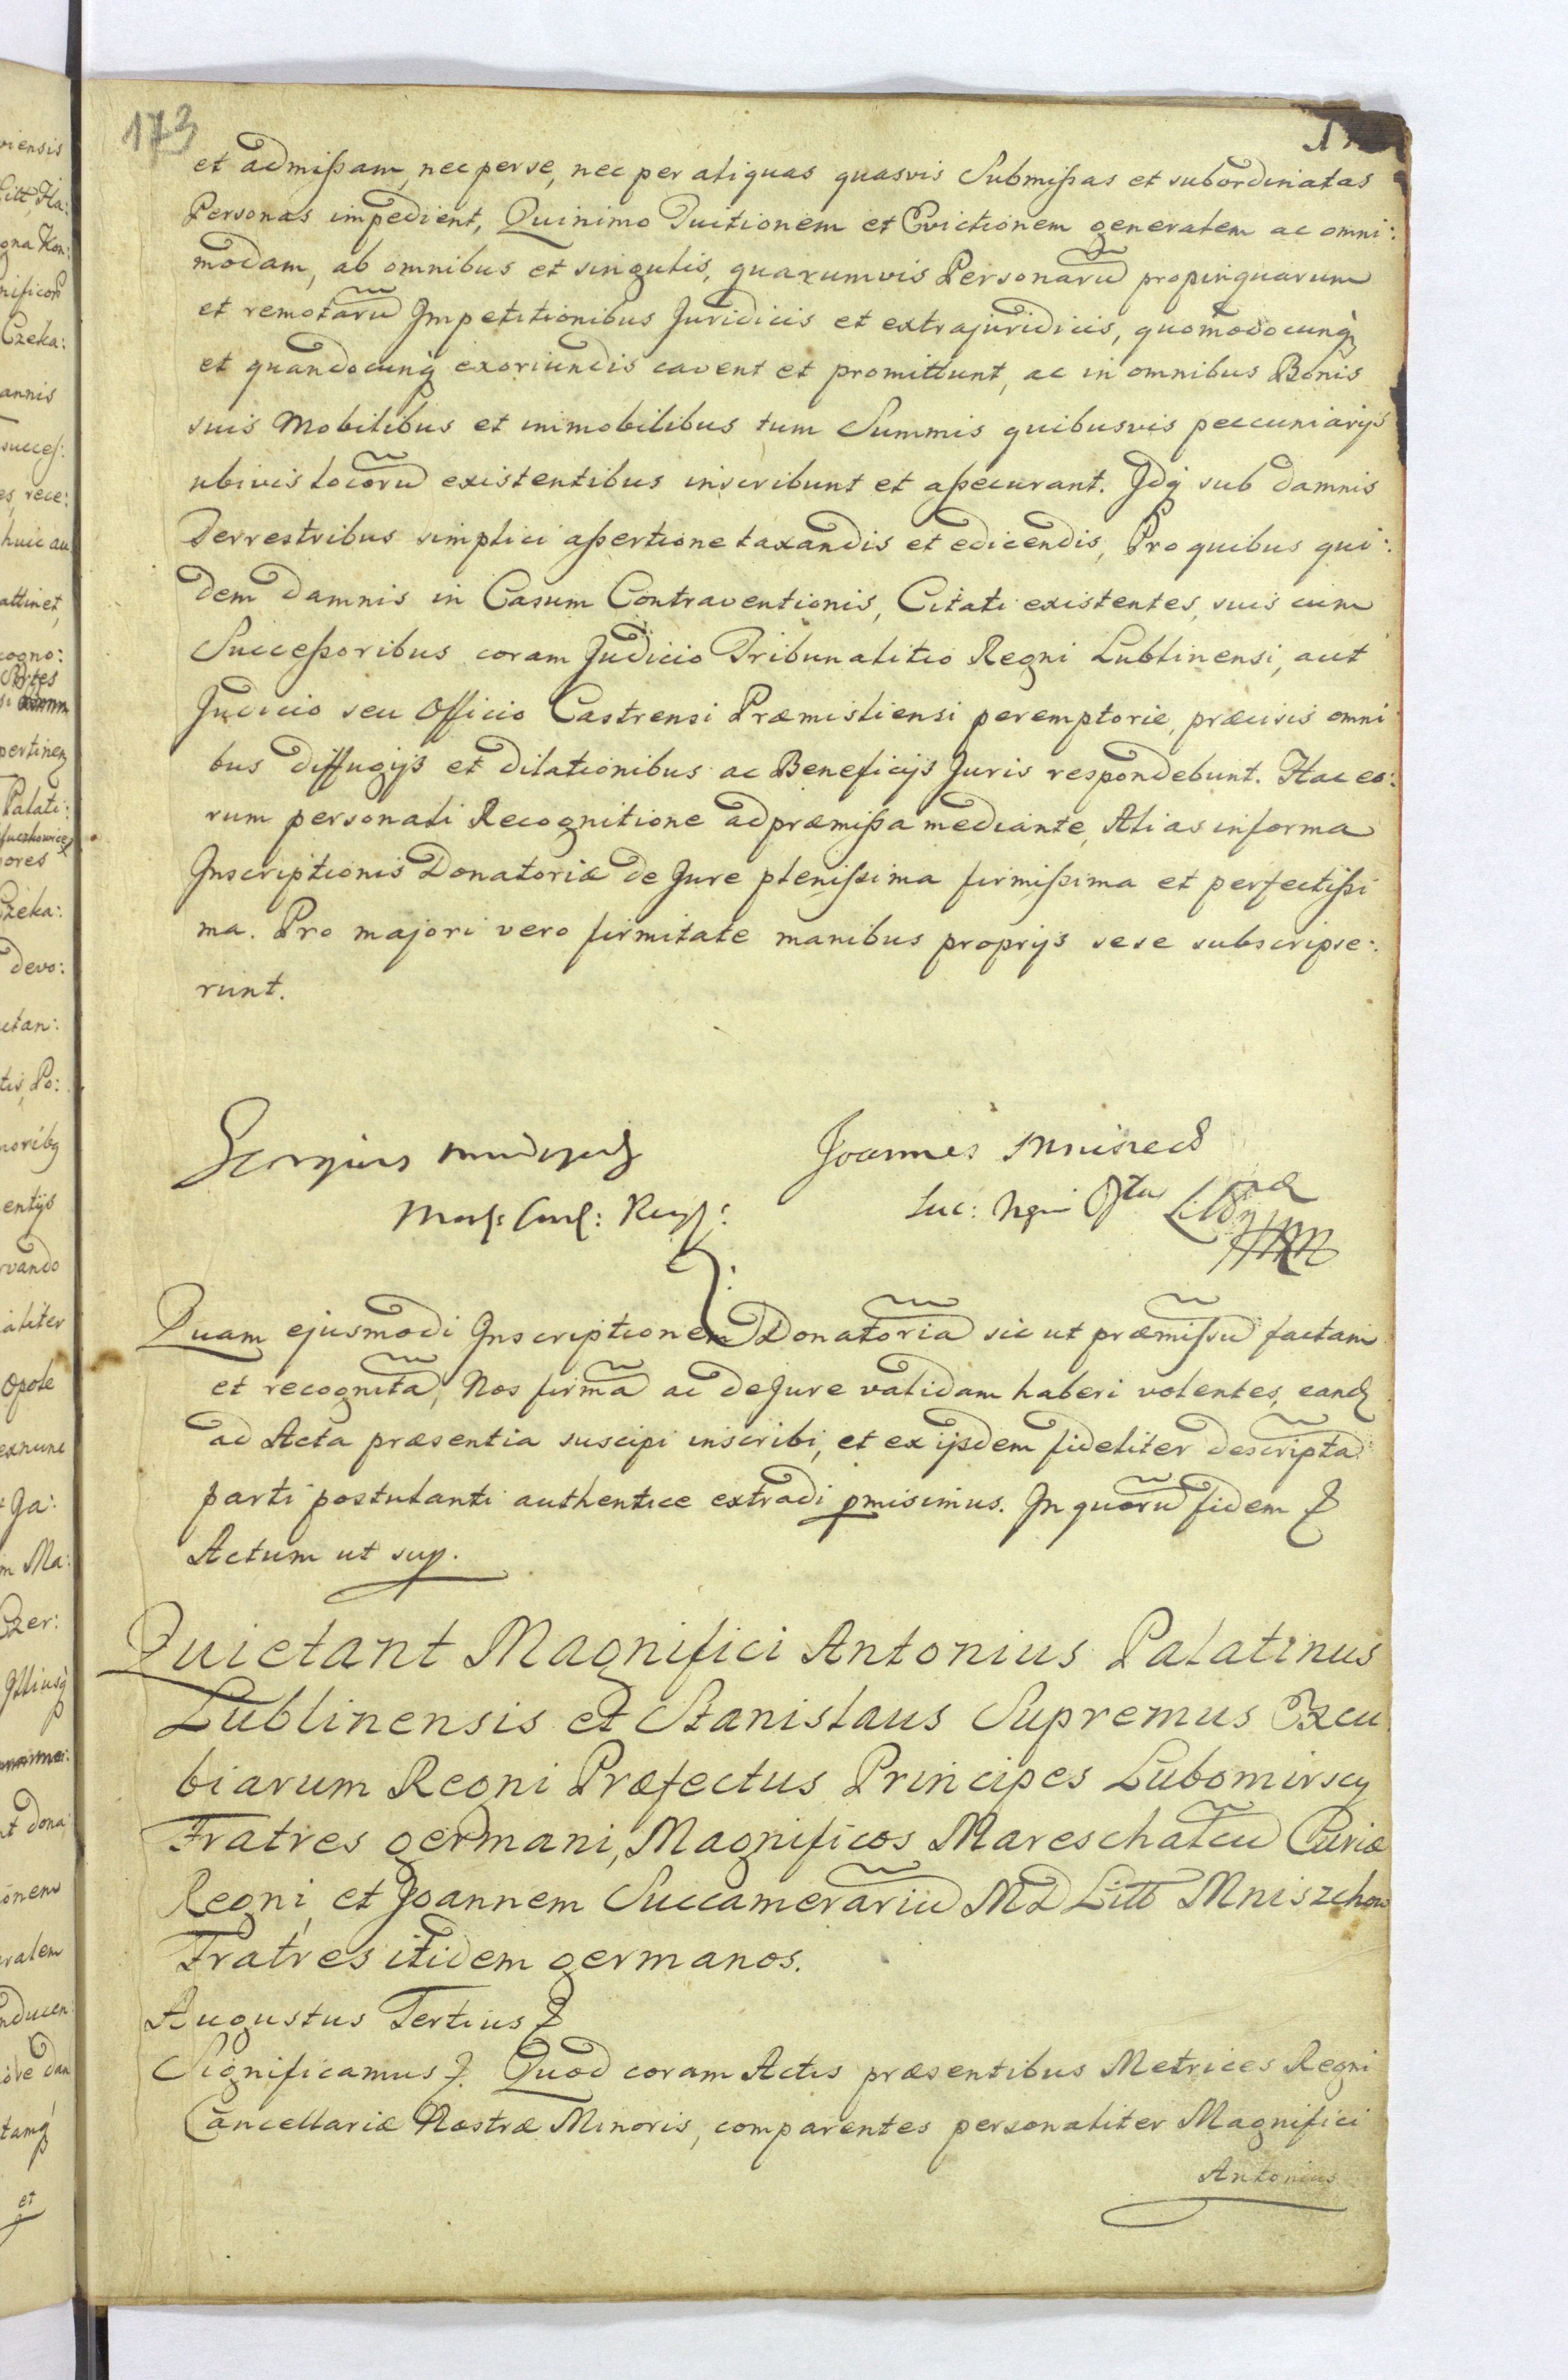 173
et admißam, nec per se, nec per aliquas quasvis Submißas et subordinatas
Personas impedient, Quinimo Tuitionem et Evictionem generalem ac omni:
modam, ab omnibus et singulis, quarumvis Personarũ propinquarum
et remotarũ Impetitionibus Juridicis et extrajuridicis, quomodocunq̃
et quandocunq̃ exoriundis cavent et promittunt, ac in omnibus Bonis
suis Mobilibus et immobilibus tum Summis quibusvis peccuniarijs
ubivis locorũ existentibus inscribunt et aßecurant. Idq̃ sub damnis
Terrestribus simplici aßertione taxandis et edicendis, Pro quibus qui:
dem damnis in Casum Contraventionis, Citati existentes, suis cum
Succeßoribus coram Judicio Tribunalitio Regni Lublinensi, aut
Judicio seu Officio Castrensi Præmisliensi peremptorie, præcisis omni
bus diffugijs et dilationibus ac Beneficijs Juris respondebunt. Hac eo:
rum personali Recognitione ad præmißa mediante, Alias in forma
Inscriptionis Donatoriæ de Jure plenißima firmißima et perfectißi
ma. Pro majori vero firmitate manibus proprijs sese subscripse:
runt.
Georgius Joannes Mniszech
Quam ejusmodi Inscriptionem Donatoriã sic ut præmißũ factam
et recognitã, Nos firmã ac de Jure validam haberi volentes, eand
ad Acta præsentia suscipi inscribi, et ex ijsdem fideliter descriptã
parti postulanti authentice extradi pmisimus. In quorũ fidem
Actum ut sup.
Quietant Magnifici Antonius Palatinus
Lublinensis et Stanislaus Supremus Excu
biarum Regni Præfectus Principes Lubomirscy
Fratres germani, Magnificos Mareschalcũ Curiæ
Regni, et Joannem Succamerariũ MD Litt Mniszchow
Fratres itidem germanos.
Augustus Tertius
Significamus. Quod coram Actis præsentibus Metrices Regni
Cancellariæ Nostræ Minoris, comparentes personaliter Magnifici
Antonius